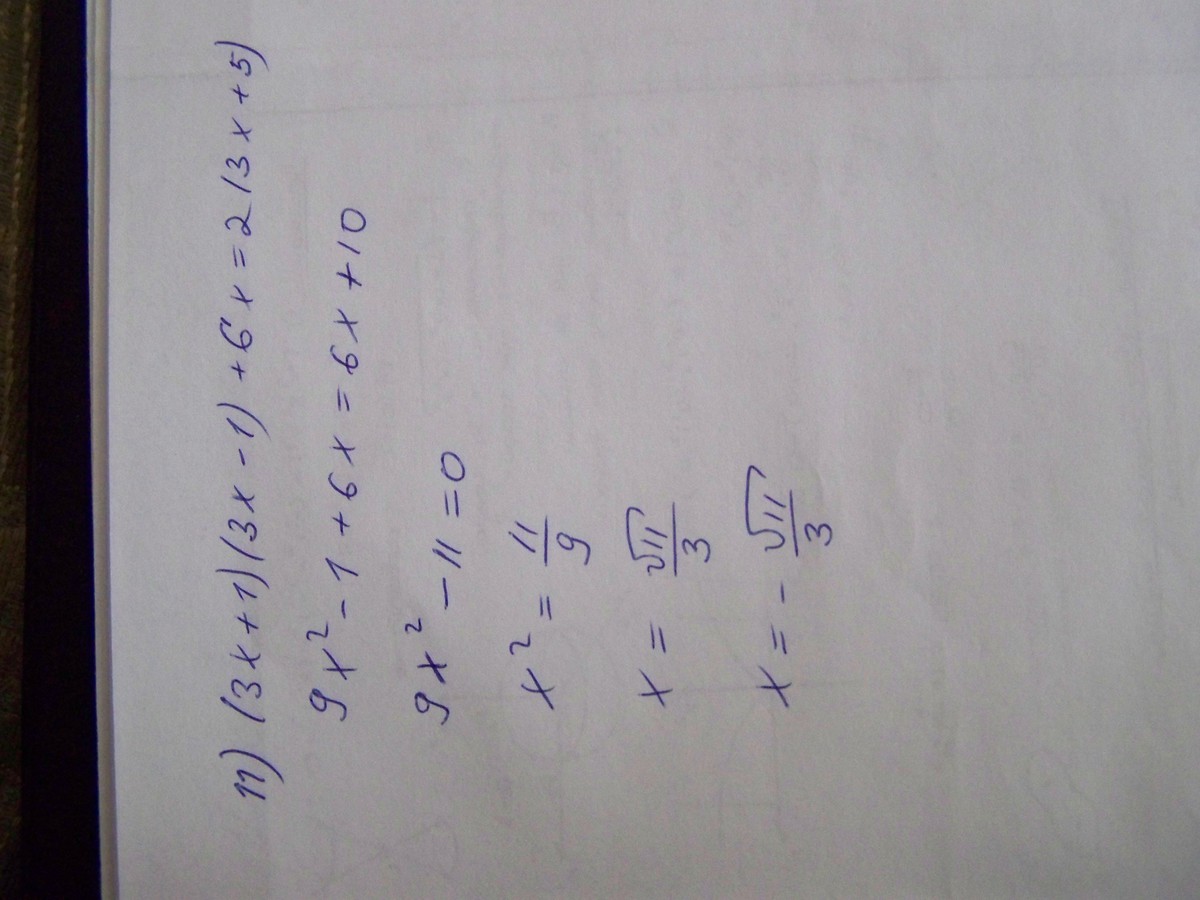 11) (3x+1)(3x-1)+6x=2(3x+5)
9x²-1+6x=6x+10
9x²-11=0
x²=11/9
x=√11/3
x=-√11/3